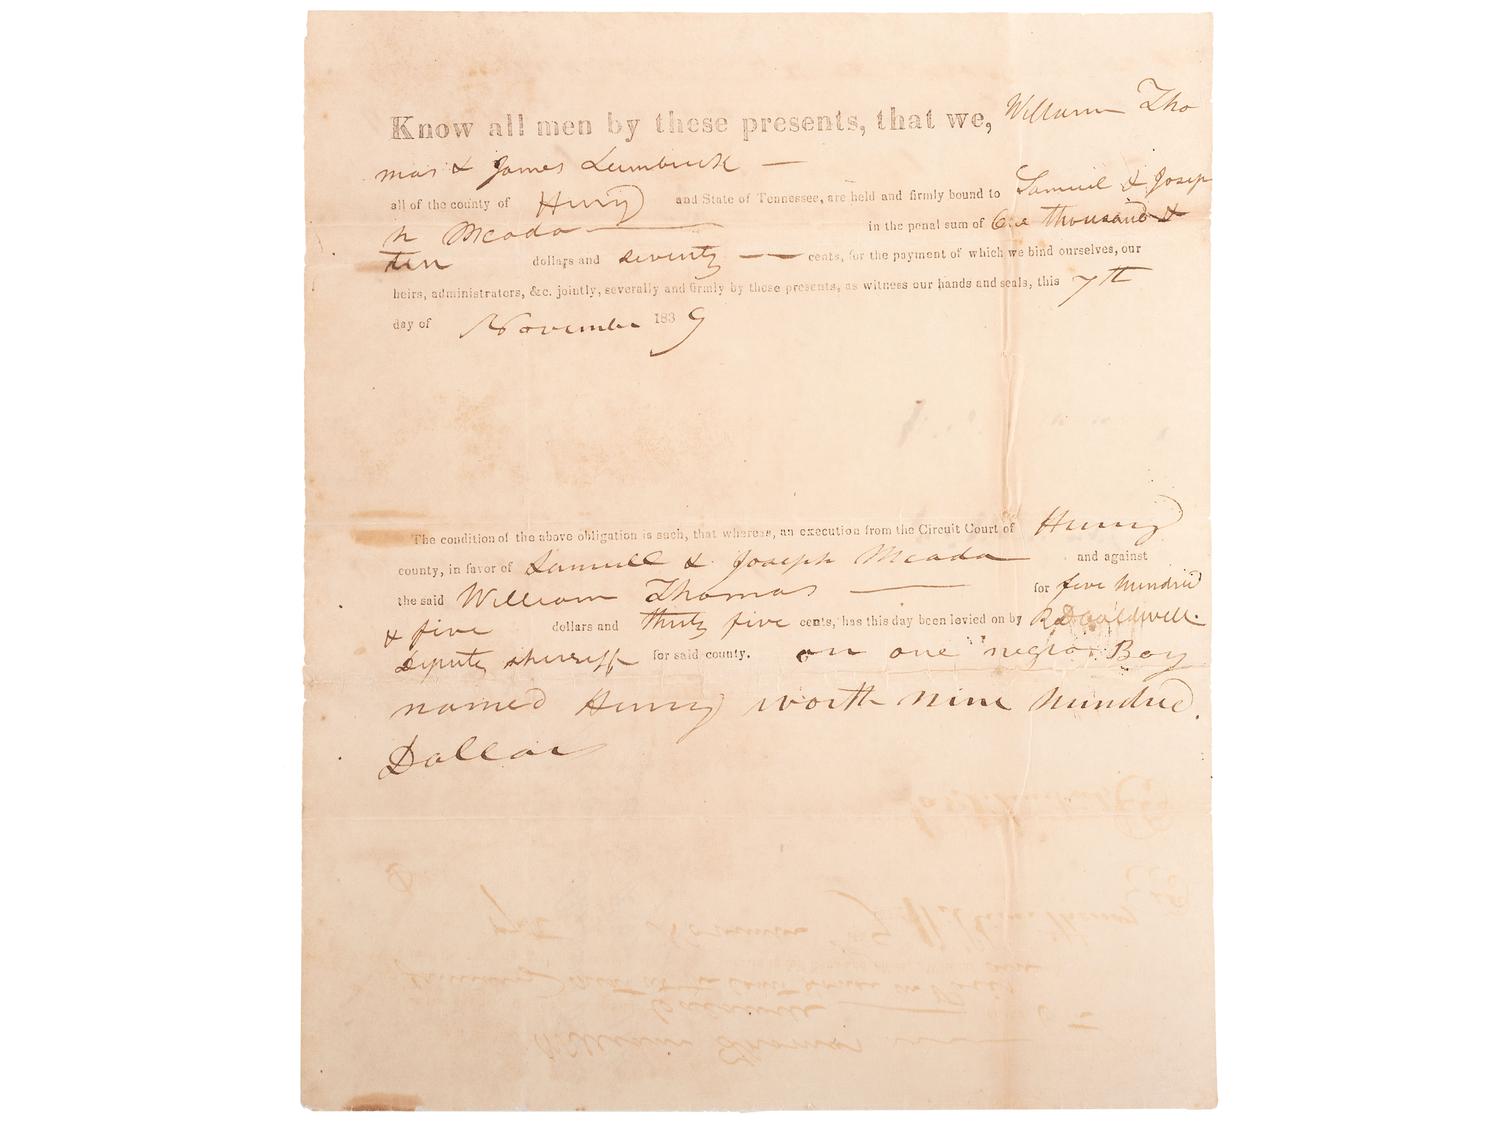 Know all men by these presents, that we, William Tho
mas & James Lumbrick —
all of the county of Henry and State of Tennessee, are held and firmly bound to Samuel & Josep
h Meada — in the penal sum of One thousand &
ten dollars and seventy — cents, for the payment of which we bind ourselves, our
heirs, administrators, &c. jointly, severally and firmly by these presents, as witness our hands and seals, this 7th
day of November 1839
The condition of the above obligation is such, that whereas, an execution from the Circuit Court of Henry
county, in favor of Samuell & Joseph Meada and against
the said William Thomas — for five hundred
& five dollars and thirty five cents, has this day been levied on by R D Caldwell
deputy sherriff for said county. on one negro Boy
named Henry worth nine hundred
Dollars